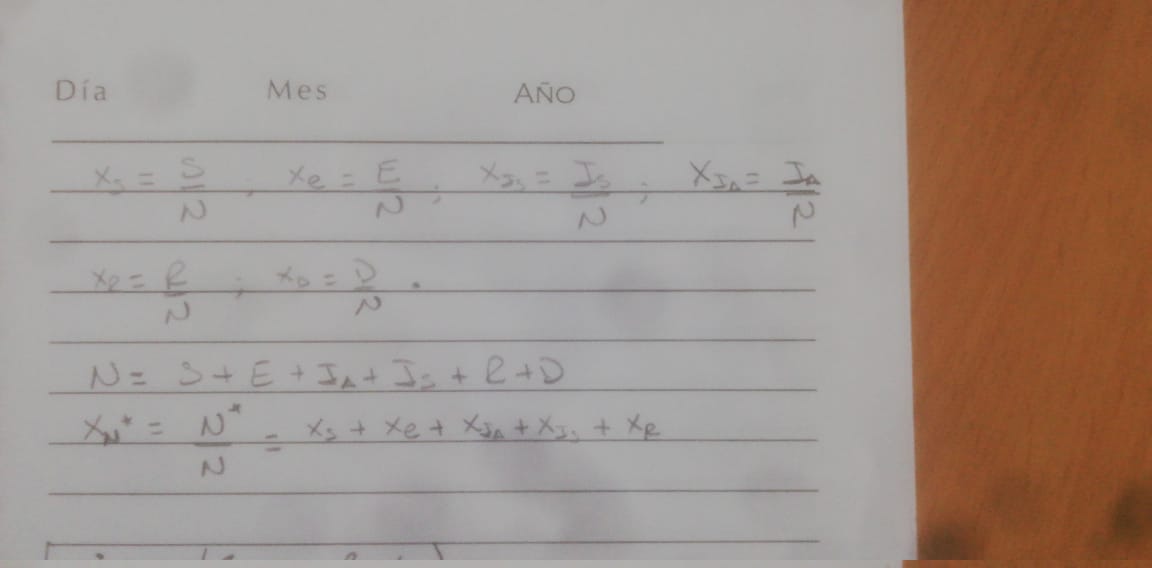 Día Mes AÑO
x_S = S/N ; x_e = E/N ; x_{I_S} = I_S/N ; x_{I_A} = I_A/N
x_R = R/N ; x_D = D/N .
N = S + E + I_A + I_S + R + D
x_{N*} = N*/N = x_S + x_e + x_{I_A} + x_{I_S} + x_R